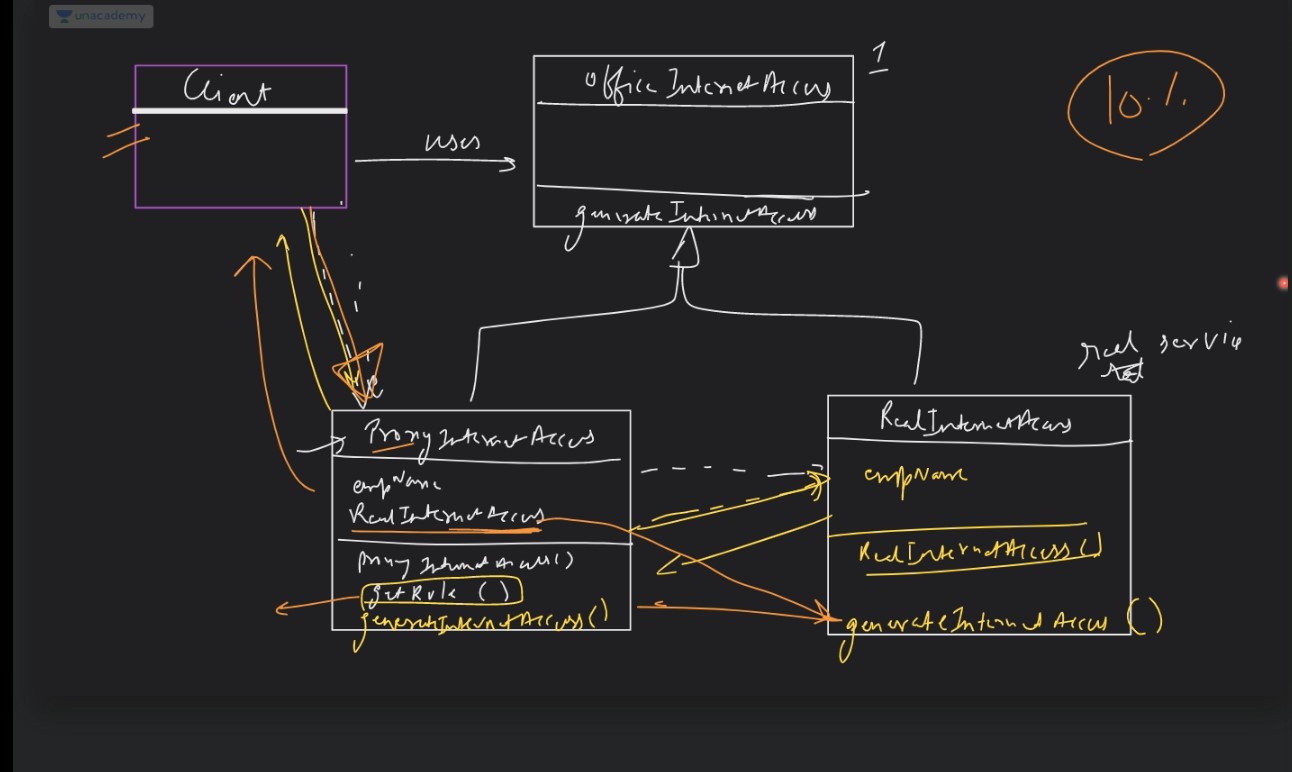 unacademy
Client
uses
OfficeInternetAccess
1
generateInternetAccess
10%
real service
ProxyInternetAccess
empName
RealInternetAccess
proxyInternetAccess()
getRole ()
generateInternetAccess()
RealInternetAccess
empName
RealInternetAccess()
generateInternetAccess ()